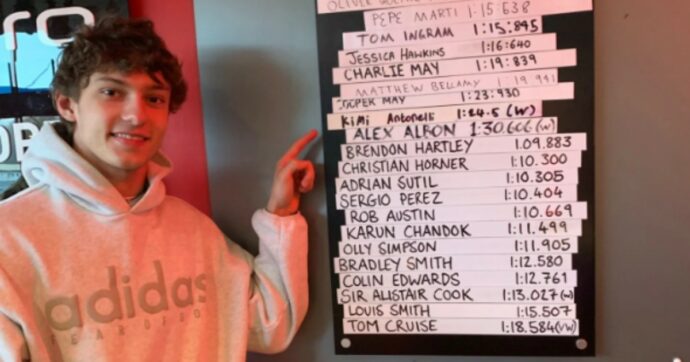 ro
OLIVER
PEPE MARTI 1:15:638
TOM INGRAM 1:15:845
JESSICA HAWKINS 1:16:640
CHARLIE MAY 1:19:839
MATTHEW BELLAMY 1:19 941
COOPER MAY 1:23:930
KiMi Antonelli 1:24.5 (W)
ALEX ALBON 1:30.606 (W)
BRENDON HARTLEY 1.09.883
CHRISTIAN HORNER 1:10.300
ADRIAN SUTIL 1:10.305
SERGIO PEREZ 1:10.404
ROB AUSTIN 1:10.669
KARUN CHANDOK 1:11.499
OLLY SIMPSON 1:11.905
BRADLEY SMITH 1:12.580
COLIN EDWARDS 1:12.761
SIR ALISTAIR COOK 1:13.027 (W)
LOUIS SMITH 1:15.507
TOM CRUISE 1:18.584 (VW)
adidas
FEAR OF GOD